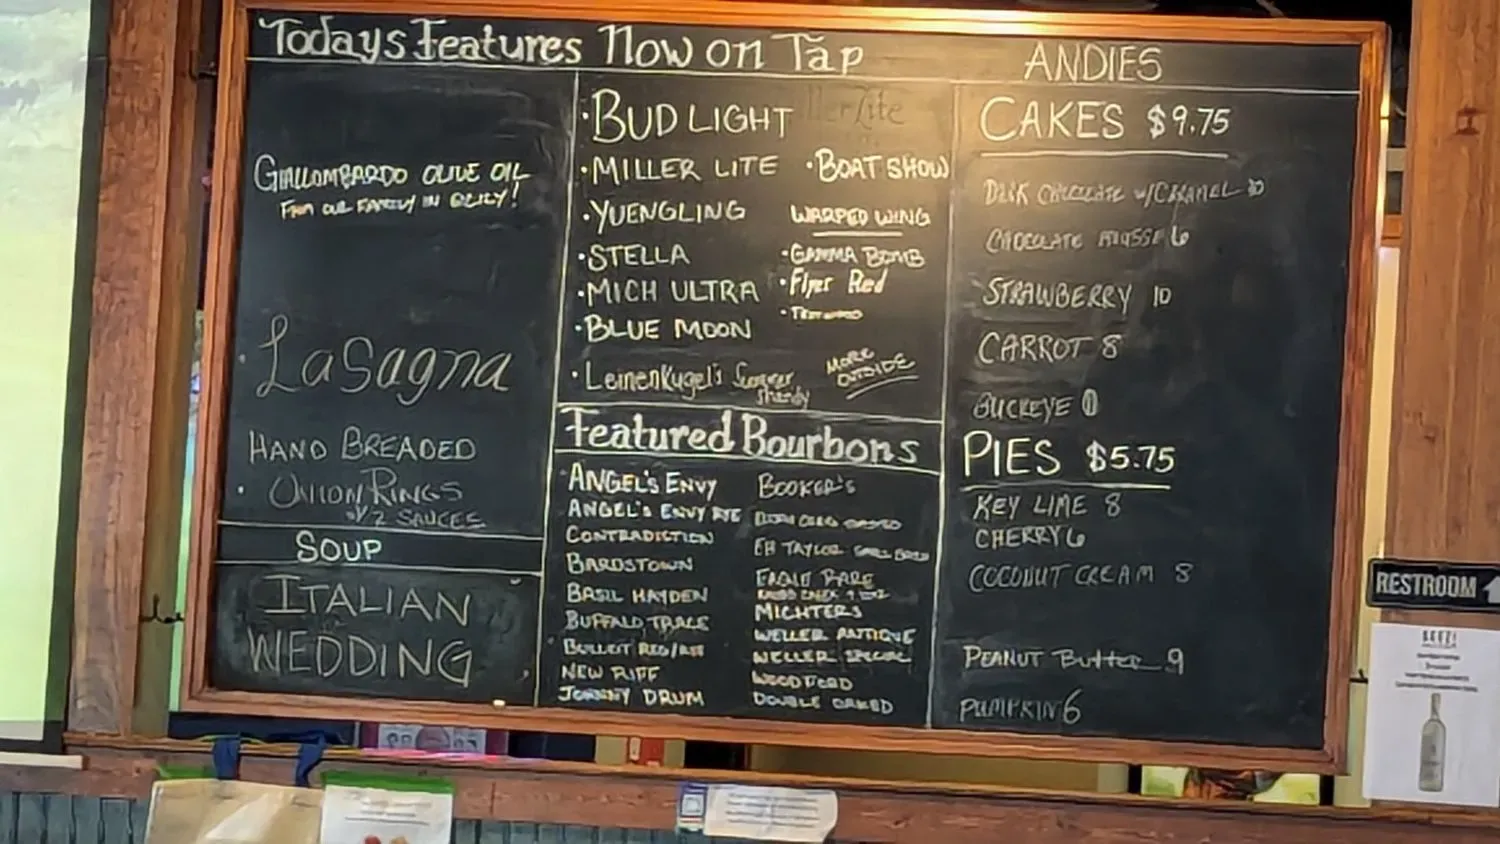 Todays Features Now on Tap
ANDIES
GIALLOMBARDO OLIVE OIL
FROM OUR FAMILY IN SICILY!
LaSagna
HAND BREADED
· ONION RINGS
W/ 2 SAUCES
SOUP
ITALIAN
WEDDING
· BUD LIGHT
· MILLER LITE
· YUENGLING
· STELLA
· MICH ULTRA
· BLUE MOON
· LeinenKugel's Summer
Shandy
· BOAT SHOW
WARPED WING
· GAMMA BOMB
· Flyer Red
MORE
OUTSIDE
Featured Bourbons
ANGEL'S ENVY
ANGEL'S ENVY RYE
CONTRADICTION
BARDSTOWN
BASIL HAYDEN
BUFFALO TRACE
BULLEIT RED/RYE
NEW RIFF
JOHNNY DRUM
BOOKER'S
EH TAYLOR
EAGLE RARE
KNOB CREEK 9
MICHTERS
WELLER ANTIQUE
WELLER SPECIAL
WOODFORD
DOUBLE OAKED
CAKES $9.75
DARK CHOCOLATE W/CARAMEL 10
CHOCOLATE MOUSSE 6
STRAWBERRY 10
CARROT 8
BUCKEYE
PIES $5.75
KEY LIME 8
CHERRY 6
COCONUT CREAM 8
PEANUT Butter 9
PUMPKIN 6
RESTROOM